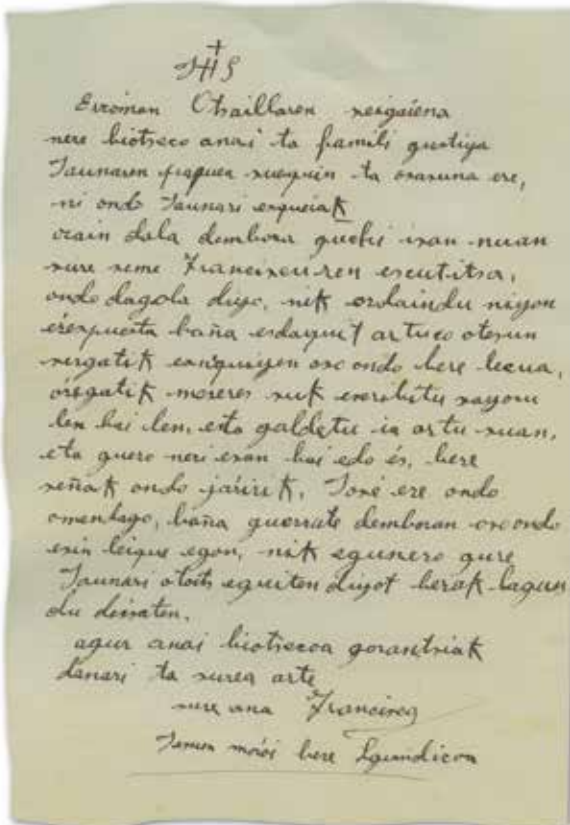 JHS
Erroman Otsaillaren
nere biotzeco anai ta famili guztiya
Jaunaren paquea zuequin ta osasuna ere,
ni ondo Jaunari esqueiak
orain dala dembora guchi izan nuan
zure seme Francizcu-ren escutitza,
ondo dagola diyo, nik ordaindu niyon
errespuesta baña esdaquit artuco otezun
zergatik ondo bere lecua,
orregatik mereces zuk
len bai len, eta galdetu ia artu zuan,
eta guero neri esan bai edo és, bere
señak ondo jarririk, José ere ondo
omendago, baña guerrate demboran oso ondo
ezin leique egon, nik egunero gure
Jaunari otoitz eguiten diyot berak lagun
du deizaten.
agur anai biotzecoa gorantziak
danari ta zurea arte
zure Francisca
bere